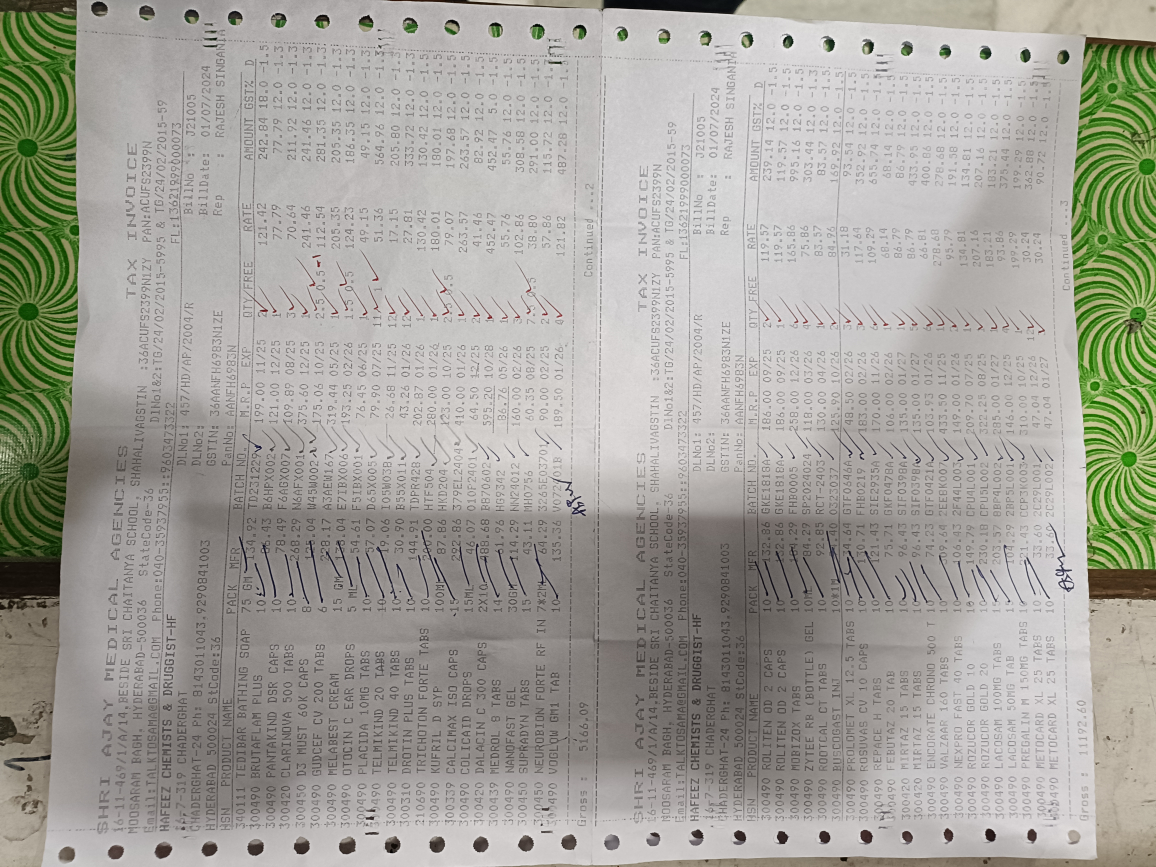 SHRI AJAY MEDICAL AGENCIES TAX INVOICE
16-11-469/1/A/14,BESIDE SRI CHAITANYA SCHOOL, SHAHALIVAGSTIN :36ACUFS2399N1ZY PAN:ACUFS2399N
MOOSARAM BAGH, HYDERABAD-500036 StateCode-36 DlNo1&2:TG/24/02/2015-5995 & TG/24/02/2015-59
Email:TALKTOSAMA@GMAIL.COM Phone:040-35937955::9603473322 FL:13621999000073
HAFEEZ CHEMISTS & DRUGGIST-HF DLNo1: 457/HD/AP/2004/R BillNo : J21005
16-7-319 CHADERGHAT DLNo2: BillDate: 01/07/2024
CHADERGHAT-24 Ph: 8143011043,9290841003 GSTIN: 36AANFH6983N1ZE Rep : RAJESH SINGANIA
HYDERABAD 500024 StCode:36 PanNo: AANFH6983N
HSN PRODUCT NAME PACK MFR BATCH NO. M.R.P EXP QTY FREE RATE AMOUNT GST% D
340111 TEDIBAR BATHING SOAP 75 GM TD23122 199.00 11/25 2 121.42 242.84 18.0 -1.5
300490 BRUTAFLAM PLUS 10 B6HPX002 121.00 12/25 1 77.79 77.79 12.0 -1.3
300490 PANTAKIND DSR CAPS 10 78.49 F6AGX007 109.89 08/25 3 70.64 211.92 12.0 -1.3
300420 CLARINOVA 500 TABS 10 268.29 N6AFX001 375.60 12/25 1 241.46 241.46 12.0 -1.3
300450 D3 MUST 60K CAPS 8 W45W002 175.06 10/25 2.5 0.5 112.54 281.35 12.0 -1.3
300490 GUDCEF CV 200 TABS 6 228.17 A3AEW167 319.44 05/25 1 205.35 205.35 12.0 -1.3
300490 MELABEST CREAM 15 GM E7IBX006 193.25 02/26 1.5 0.5 124.23 186.35 12.0 -1.3
300490 OTOCIN C EAR DROPS 5 ML 54.61 F5IBX001 76.45 06/25 1 49.15 49.15 12.0 -1.3
300490 PLACIDA 10MG TABS 10 57.07 D65X005 79.90 07/25 11 1 51.36 564.96 12.0 -1.3
300490 TELMIKIND 20 TABS 10 IO5W038 26.68 11/25 12 17.15 205.80 12.0 -1.3
300490 TELMIKIND 40 TABS 10 30.90 B55X011 43.26 01/26 12 27.81 333.72 12.0 -1.3
300310 DROTIN PLUS TABS 10 144.91 TDPR428 202.87 01/26 1 130.42 130.42 12.0 -1.5
210690 TRICHOTON FORTE TABS 10 HTFS04 280.00 01/26 1 180.01 180.01 12.0 -1.5
300490 KUFRIL D SYP 100ML 87.86 HKD204 123.00 10/25 2.5 0.5 79.07 197.68 12.0 -1.5
300339 CALCIMAX ISO CAPS 15 292.86 379EL2404 410.00 01/26 1 263.57 263.57 12.0 -1.5
300490 COLICAID DROPS 15ML 46.07 O10F24017 64.50 12/25 2 41.46 82.92 12.0 -1.5
300420 DALACIN C 300 CAPS 2X10 488.68 BB70602 595.20 10/28 1 452.47 452.47 5.0 -1.5
300439 MEDROL 8 TABS 14 HG9342 86.76 05/26 1 55.76 55.76 12.0 -1.5
300490 NANOFAST GEL 30GM 114.29 NN24012 160.00 02/26 3 102.86 308.58 12.0 -1.5
300450 SUPRADYN TABS 15 43.11 MHO756 60.35 08/25 7.5 0.5 38.80 291.00 12.0 -1.5
300450 NEUROBION FORTE RF IN 7*2ML 64.29 3265E03707 90.00 02/25 2 57.86 115.72 12.0 -1.5
300490 VOGLOW GM1 TAB 10 135.36 VO72401B 189.50 01/26 4 121.82 487.28 12.0 -1.5
Gross : 5166.09 Continued ...2
SHRI AJAY MEDICAL AGENCIES TAX INVOICE
16-11-469/1/A/14,BESIDE SRI CHAITANYA SCHOOL, SHAHALIVAGSTIN :36ACUFS2399N1ZY PAN:ACUFS2399N
MOOSARAM BAGH, HYDERABAD-500036 StateCode-36 DlNo1&2:TG/24/02/2015-5995 & TG/24/02/2015-59
Email:TALKTOSAMA@GMAIL.COM Phone:040-35937955::9603473322 FL:13621999000073
HAFEEZ CHEMISTS & DRUGGIST-HF DLNo1: 457/HD/AP/2004/R BillNo : J21005
16-7-319 CHADERGHAT DLNo2: BillDate: 01/07/2024
CHADERGHAT-24 Ph: 8143011043,9290841003 GSTIN: 36AANFH6983N1ZE Rep : RAJESH SINGANIA
HYDERABAD 500024 StCode:36 PanNo: AANFH6983N
HSN PRODUCT NAME PACK MFR BATCH NO. M.R.P EXP QTY FREE RATE AMOUNT GST% D
300490 ROLITEN OD 2 CAPS 10 132.86 GKE1818A 186.00 09/25 2 119.57 239.14 12.0 -1.5
300490 ROLITEN OD 2 CAPS 10 132.86 GKE1818A 186.00 09/25 1 119.57 119.57 12.0 -1.5
300490 MOBIZOX TABS 10 184.29 FHB0005 258.00 12/26 6 165.86 995.16 12.0 -1.5
300490 ZYTEE RB (BOTTLE) GEL 10 84.29 SPO24024 118.00 03/26 4 75.86 303.44 12.0 -1.5
300490 ROTCAL CT TABS 10 92.85 RCT-2473 130.00 04/26 1 83.57 83.57 12.0 -1.3
300490 BUSCOGAST INJ 10*1M O323O037 125.90 10/26 2 84.96 169.92 12.0 -1.5
300490 PROLOMET XL 12.5 TABS 10 GTF0646A 48.50 02/26 3 31.18 93.54 12.0 -1.5
300490 ROSUVAS CV 10 CAPS 10 130.71 FHB0219 183.00 02/26 3 117.64 352.92 12.0 -1.5
300490 REPACE H TABS 10 121.43 SIE2935A 170.00 11/26 6 109.29 655.74 12.0 -1.5
300490 FEBUTAZ 20 TAB 10 75.71 GKF0478A 106.00 02/26 1 68.14 68.14 12.0 -1.5
300490 MIRTAZ 15 TABS 10 96.43 SIF0398A 135.00 01/27 1 86.79 86.79 12.0 -1.5
300490 MIRTAZ 15 TABS 10 96.43 SIF0398A 135.00 01/27 5 86.79 433.95 12.0 -1.5
300490 ENCORATE CHRONO 500 T 10 74.23 GTF0421A 103.93 01/27 6 66.81 400.86 12.0 -1.5
300490 VALZAAR 160 TABS 10 309.64 2EEEK007 433.50 11/26 1 278.68 278.68 12.0 -1.5
300490 NEXPRO FAST 40 TABS 10 106.43 2F4FL003 149.00 01/27 95.79 911.58 12.0 -1.5
300490 ROZUCOR GOLD 10 10 149.79 CPU4L001 209.70 01/26 1 134.81 134.81 12.0 -1.5
300490 ROZUCOR GOLD 20 10 230.18 CPU5L002 322.25 02/26 1 207.16 207.16 12.0 -1.5
300490 LACOSAM 100MG TABS 10 203.57 2BP4L002 285.00 02/27 1 183.21 183.21 12.0 -1.5
300490 LACOSAM 50MG TAB 10 104.29 2BP5L001 146.00 01/27 4 93.86 375.44 12.0 -1.5
300490 PREGALIN M 150MG TABS 10 221.43 2CP3K003 310.00 10/25 1 199.29 199.29 12.0 -1.5
300490 METOCARD XL 25 TABS 10 33.60 2C29L002 47.04 12/26 12 30.24 362.88 12.0 -1.5
300490 METOCARD XL 25 TABS 10 33.60 2C29L002 47.04 01/27 3 30.24 90.72 12.0 -1.5
Gross : 11192.60 Continued...3